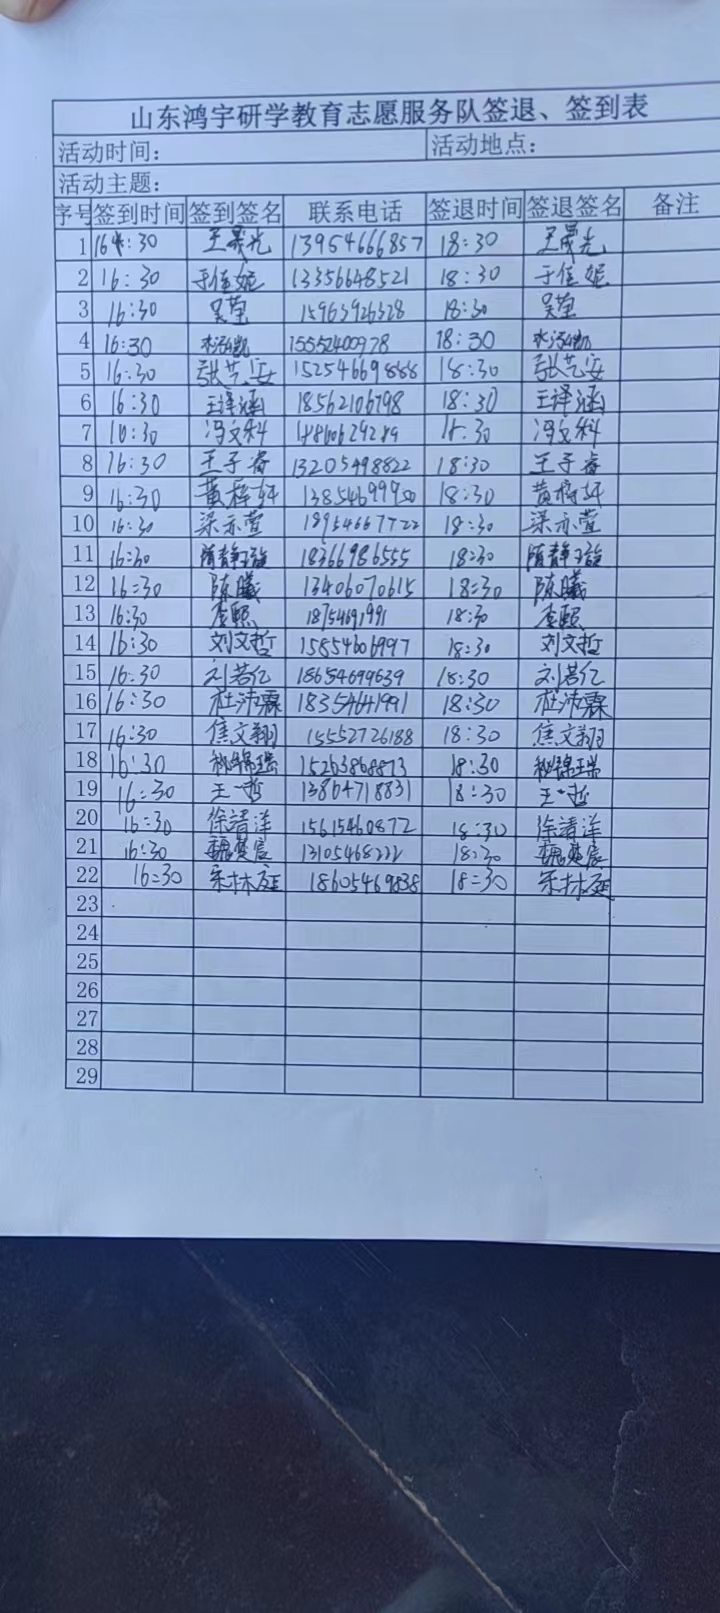 山东鸿宇研学教育志愿服务队签退、签到表
活动时间： 活动地点：
活动主题：
序号 签到时间 签到签名 联系电话 签退时间 签退签名 备注
1 16:30 王晟光 13954666857 18:30 王晟光
2 16:30 于佳妮 13356648521 18:30 于佳妮
3 16:30 吴莹 15963926328 18:30 吴莹
4 16:30 15552400978 18:30
5 16:30 张艺安 15254669888 18:30 张艺安
6 16:30 王译涵 18562106798 18:30 王译涵
7 10:30 冯文科 18:30 冯文科
8 16:30 王子睿 13205498822 18:30 王子睿
9 16:30 黄梓轩 18:30 黄梓轩
10 16:30 梁亦萱 18954667722 18:30 梁亦萱
11 16:30 隋静璇 18366986555 18:30 隋静璇
12 16:30 陈曦 13406070615 18:30 陈曦
13 16:30 李熙 18754691991 18:30 李熙
14 16:30 刘文哲 15854606997 18:30 刘文哲
15 16:30 刘若亿 18654699639 18:30 刘若亿
16 16:30 杜沛霖 18354641991 18:30 杜沛霖
17 16:30 焦文翔 15552726188 18:30 焦文翔
18 16:30 15263868873 18:30
19 16:30 王一哲 13864718831 18:30 王一哲
20 16:30 徐清洋 15615460872 18:30 徐清洋
21 16:30 13105468222 18:30
22 16:30 宋林延 18605469838 18:30 宋林延
23
24
25
26
27
28
29